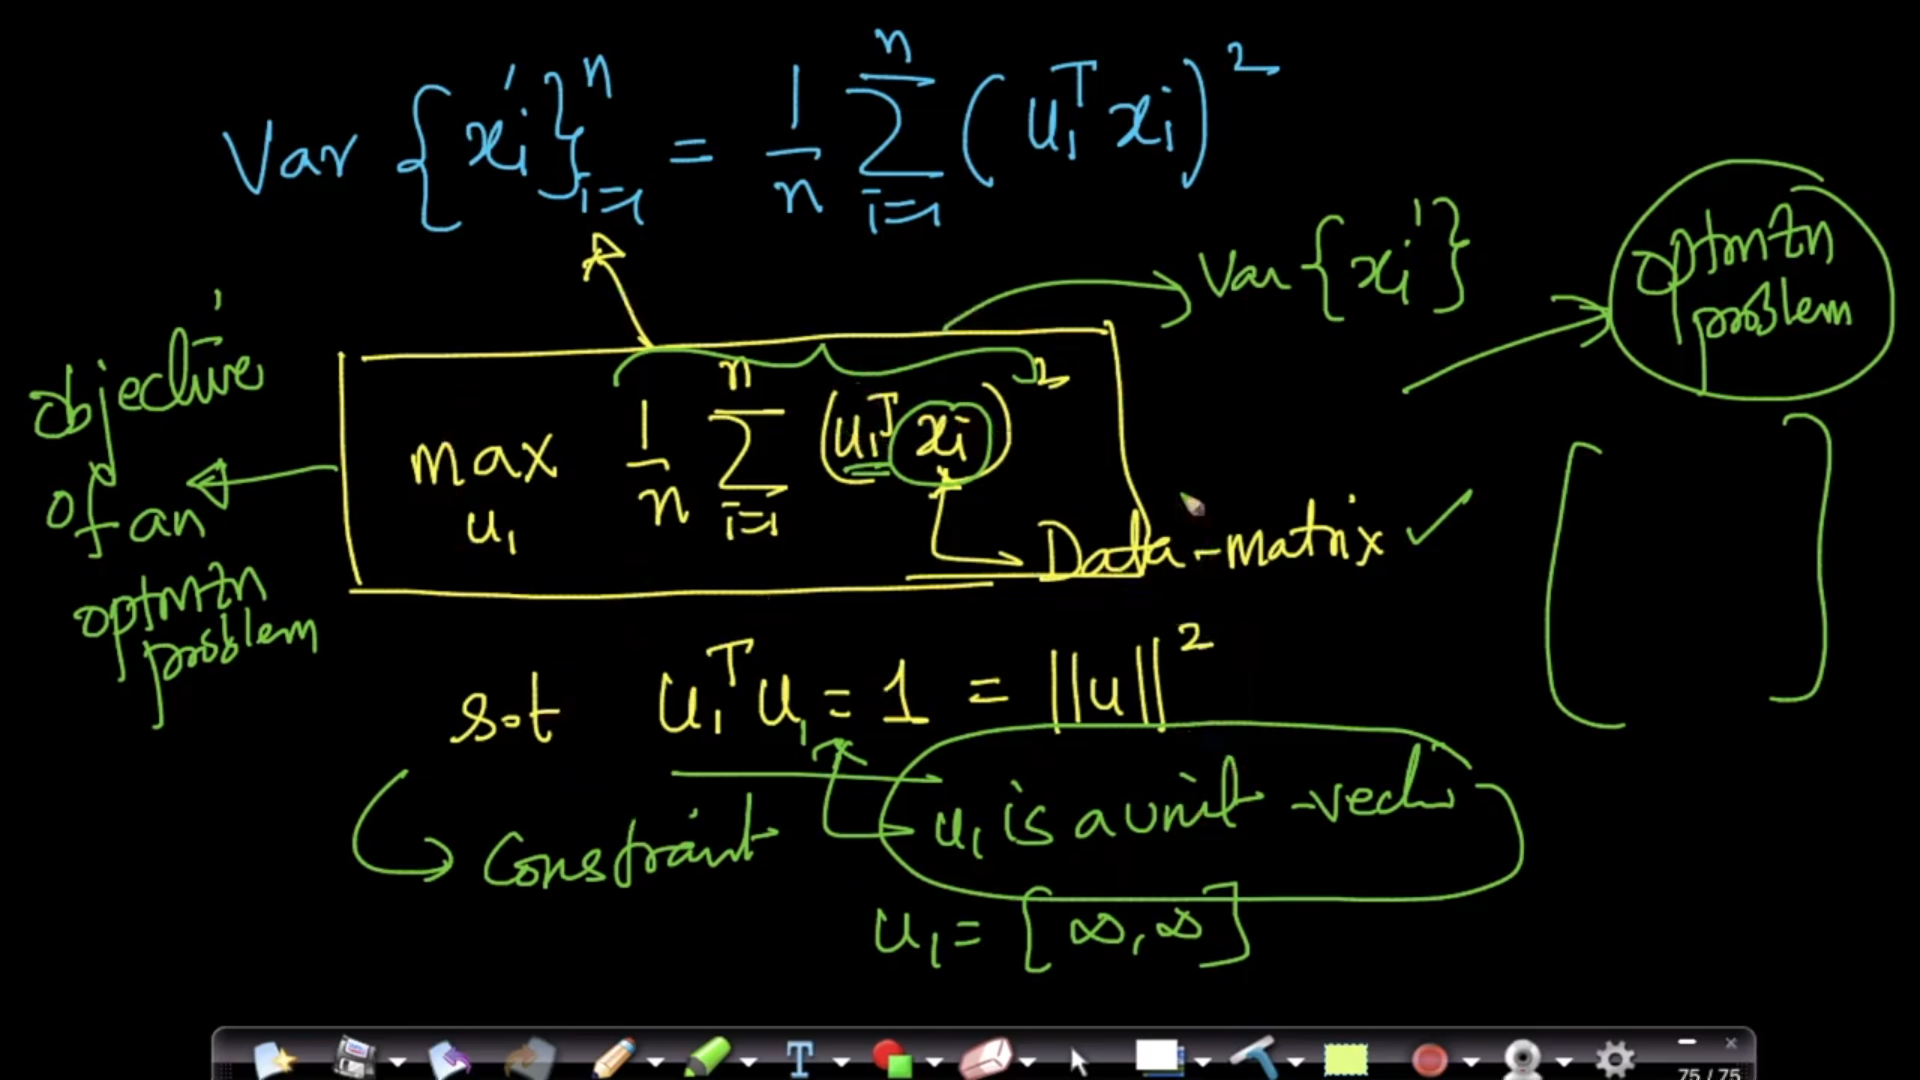 Var {xi'}ⁿi=1 = 1/n Σⁿi=1 (u₁ᵀxi)²
Var {xi'}
optmzn
problem
objective
of an
optmzn
problem
max u₁ 1/n Σⁿi=1 (u₁ᵀxi)²
Data-matrix ✓
s.t u₁ᵀu₁ = 1 = ||u||²
Constraint
u₁ is a unit-vector
u₁ = [∞, ∞]
T
75 / 75